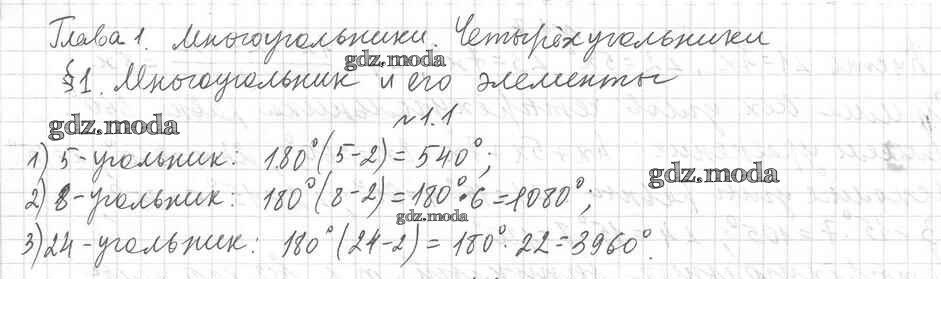 Глава 1. Многоугольники. Четырёхугольники
gdz.moda
§1. Многоугольник и его элементы
gdz.moda
№1.1
1) 5-угольник: 180°(5-2) = 540°;
gdz.moda
2) 8-угольник: 180°(8-2) = 180°·6 = 1080°;
gdz.moda
3) 24-угольник: 180°(24-2) = 180°·22 = 3960°.